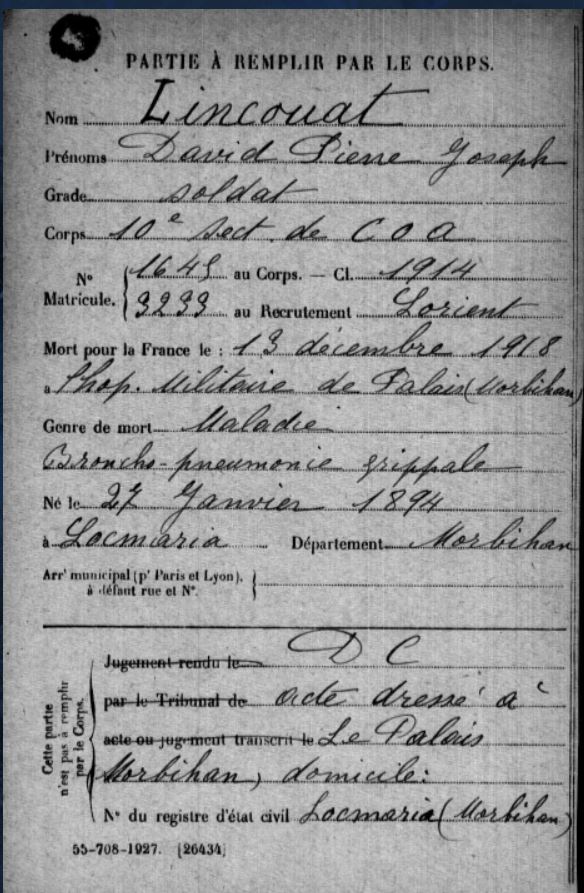 PARTIE À REMPLIR PAR LE CORPS.
Nom Lincouat
Prénoms David Pierre Joseph
Grade soldat
Corps 10e Sect. de C O A
N° Matricule. 1645 au Corps. — Cl. 1914
3233 au Recrutement Lorient
Mort pour la France le : 13 décembre 1918
a l'hop. Militaire de Palais (Morbihan)
Genre de mort Maladie
Broncho-pneumonie grippale
Né le 27 Janvier 1894
à Locmaria Département Morbihan
Arrt municipal (pr Paris et Lyon),
à défaut rue et N°.
Cette partie n'est pas à remplir par le Corps.
Jugement rendu le D C
par le Tribunal de acte dressé à
acte ou jugement transcrit le Le Palais
Morbihan, domicile:
N° du registre d'état civil Locmaria (Morbihan)
55-708-1927. [26434]